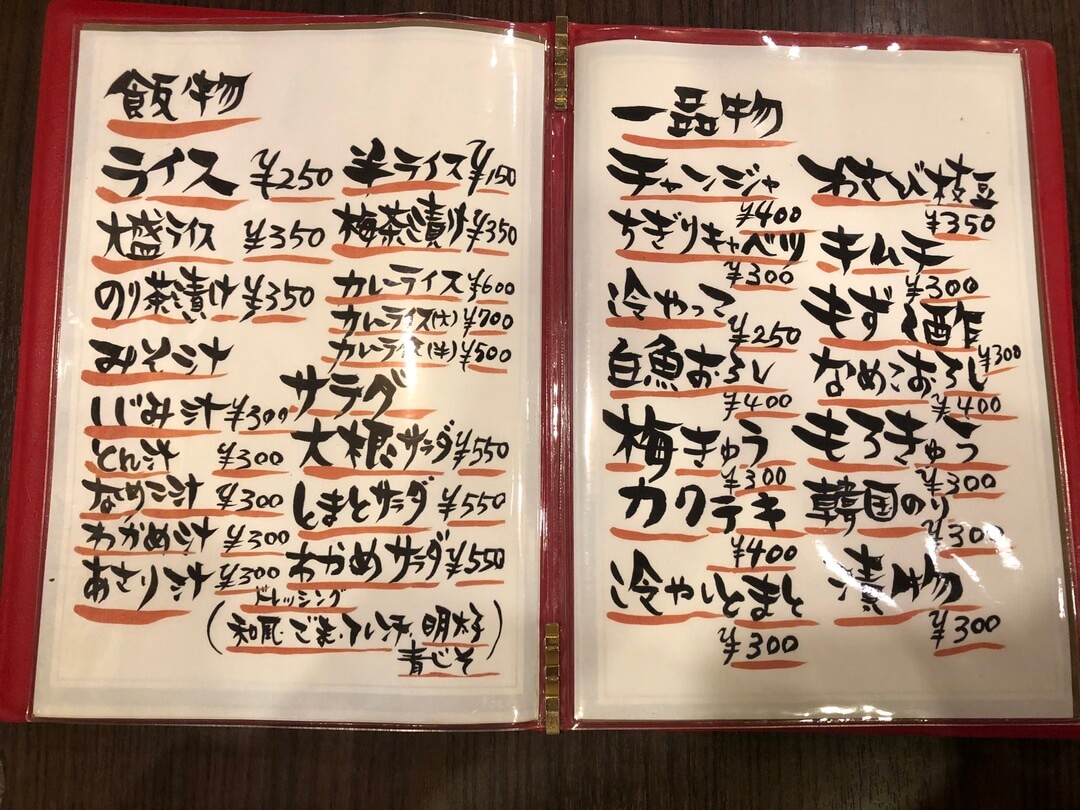 飯物
ライス ¥250
大盛ライス ¥350
のり茶漬け ¥350
みそ汁
しじみ汁 ¥300
とん汁 ¥300
なめこ汁 ¥300
わかめ汁 ¥300
あさり汁 ¥300
半ライス ¥150
梅茶漬け ¥350
カレーライス ¥600
カレーライス(大) ¥700
カレーライス(半) ¥500
サラダ
大根サラダ ¥550
しまとサラダ ¥550
わかめサラダ ¥550
ドレッシング
(和風・ごま・フレンチ・明太子
青じそ)
一品物
チャンジャ
¥400
ちぎりキャベツ
¥300
冷やっこ
¥250
白魚おろし
¥400
梅きゅう
¥300
カクテキ
¥400
冷やしとまと
¥300
わさび枝豆
¥350
キムチ
¥300
もずく酢
¥300
なめこおろし
¥400
もろきゅう
¥300
韓国のり
¥300
漬物
¥300